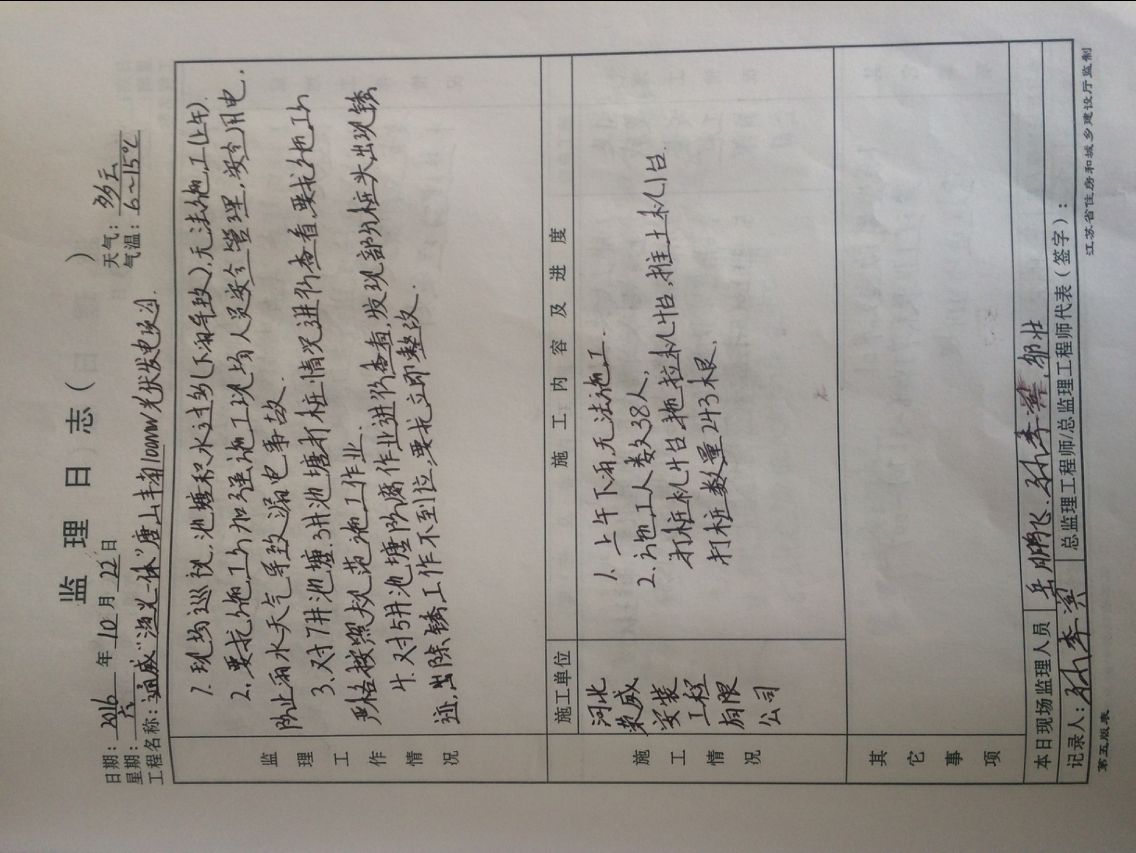 监 理 日 志（日 志）
日期：2016 年 10 月 22 日
天气：多云
星期：六
气温：6～15℃
工程名称：通威“渔光一体”唐山丰南100MW光伏发电项目
监理工作情况
1. 现场巡视，池塘积水过多(下雨导致)，无法施工(上午).
2. 要求施工方加强施工现场人员安全管理，安全用电，
防止雨水天气导致漏电事故.
3. 对7井池塘.3井池塘打桩情况进行查看，要求施工方
严格按照规范施工作业.
4. 对5井池塘防腐作业进行查看，发现部分桩头出现锈
迹，出除锈工作不到位，要求立即整改.
施工单位
施 工 内 容 及 进 度
施工情况
河北
荣威
安装
工程
有限
公司
1. 上午下雨无法施工.
2. 施工人数38人，
打桩机4台，拖拉机4台，推土机1台.
打桩数量243根.
其它事项
本日现场监理人员
岳鹏飞.
记录人：
总监理工程师/总监理工程师代表（签字）：
第五版表
江苏省住房和城乡建设厅监制